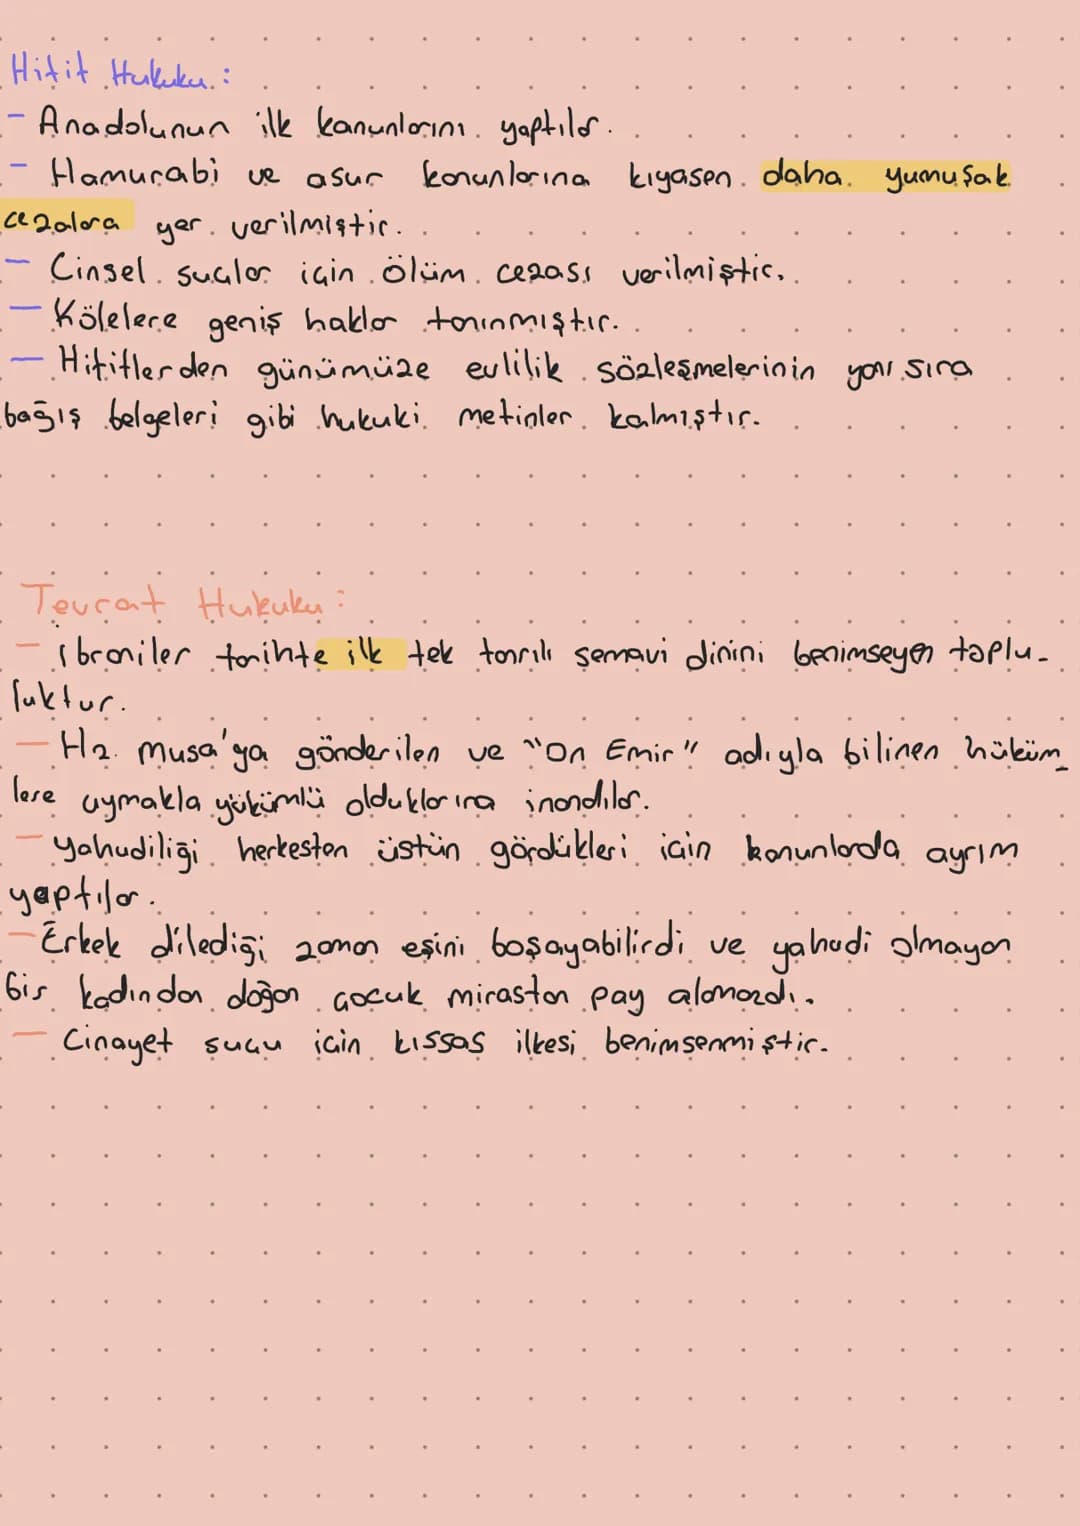 Hitit Hukuku:
- Anadolunun ilk kanunlarını yaptılar.
- Hamurabi ve asur kanunlarına kıyasen daha yumuşak
cezalara yer verilmiştir.
- Cinsel suçlar için ölüm cezası verilmiştir.
- Kölelere geniş haklar tanınmıştır.
- Hititlerden günümüze evlilik sözleşmelerinin yanı sıra
bağış belgeleri gibi hukuki metinler kalmıştır.
Tevrat Hukuku:
- İbraniler tarihte ilk tek tanrılı semavi dinini benimseyen toplu-
luktur.
- Hz. Musa'ya gönderilen ve "On Emir" adıyla bilinen hüküm-
lere uymakla yükümlü olduklarına inandılar.
- Yahudiliği herkesten üstün gördükleri için kanunlarda ayrım
yaptılar.
- Erkek dilediği zaman eşini boşayabilirdi ve yahudi olmayan
bir kadından doğan çocuk mirastan pay alamazdı.
- Cinayet suçu için kıssas ilkesi benimsenmiştir.